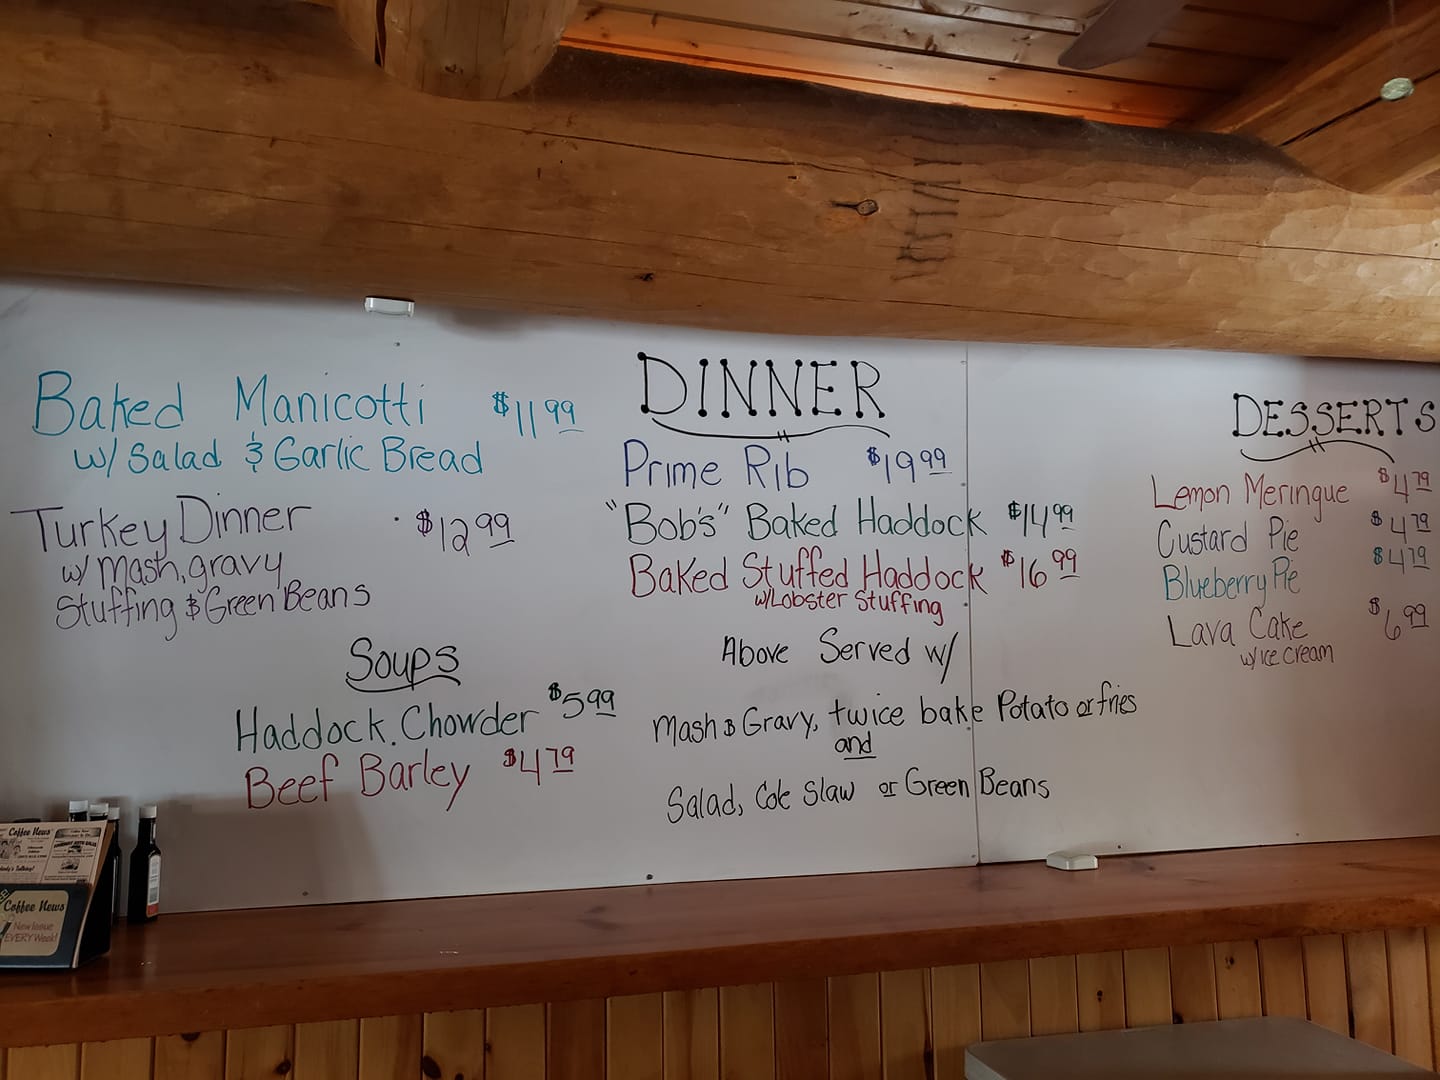 Baked Manicotti $11.99
w/ Salad & Garlic Bread
Turkey Dinner $12.99
w/ Mash, gravy
Stuffing & Green Beans
Soups
Haddock Chowder $5.99
Beef Barley $4.79
DINNER
Prime Rib $19.99
"Bob's" Baked Haddock $14.99
Baked Stuffed Haddock $16.99
w/Lobster Stuffing
Above Served w/
Mash & Gravy, twice bake Potato or fries
and
Salad, Cole Slaw or Green Beans
DESSERTS
Lemon Meringue $4.79
Custard Pie $4.79
Blueberry Pie $4.79
Lava Cake $6.99
w/ ice cream
Coffee News
Coffee News
New Issue
EVERY Week!